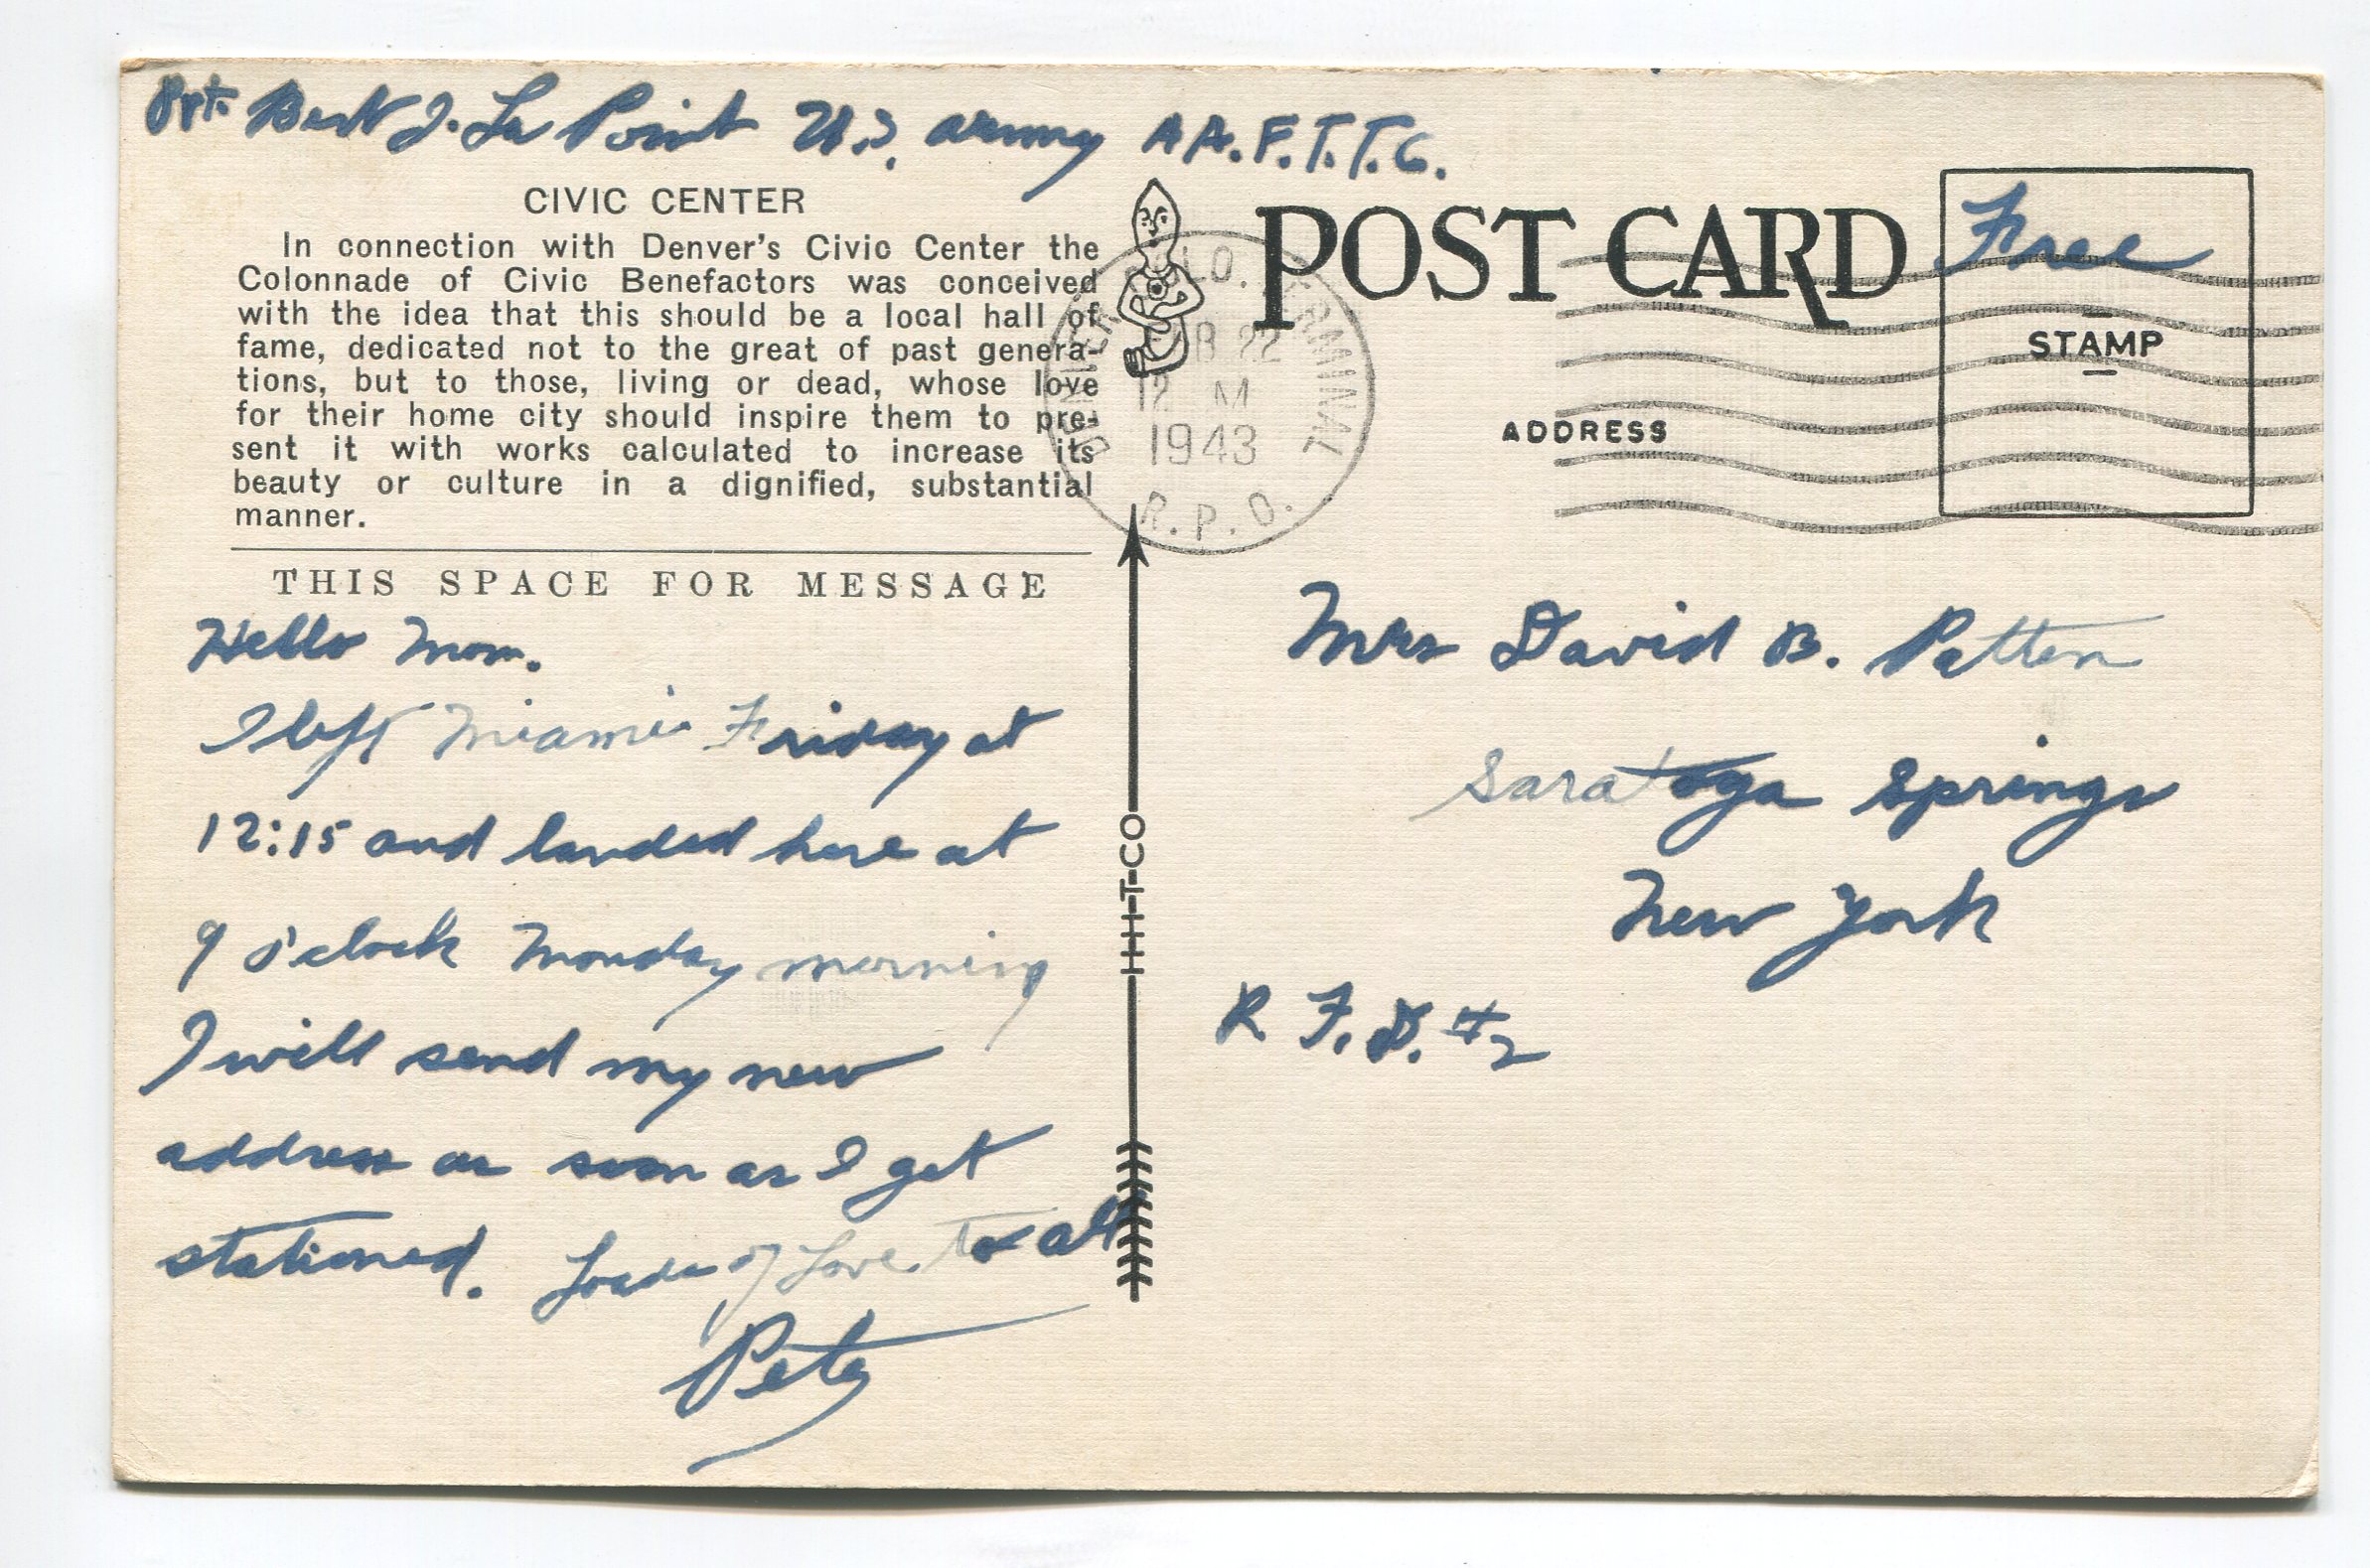 Pvt. Bert J. La Point U.S. Army A.A.F.T.T.C.
CIVIC CENTER
In connection with Denver's Civic Center the
Colonnade of Civic Benefactors was conceived
with the idea that this should be a local hall of
fame, dedicated not to the great of past genera-
tions, but to those, living or dead, whose love
for their home city should inspire them to pre-
sent it with works calculated to increase its
beauty or culture in a dignified, substantial
manner.
THIS SPACE FOR MESSAGE
Hello Mom.
I left Miami Friday at
12:15 and landed here at
9 o'clock Monday morning
I will send my new
address as soon as I get
stationed. Loads of Love to all
Pete
H-H-T-CO
POST CARD
Free
STAMP
ADDRESS
DENVER COLO. TERMINAL
FEB 22
12 M
1943
R.P.O.
Mrs David B. Patten
Saratoga Springs
New York
R.F.D. #2